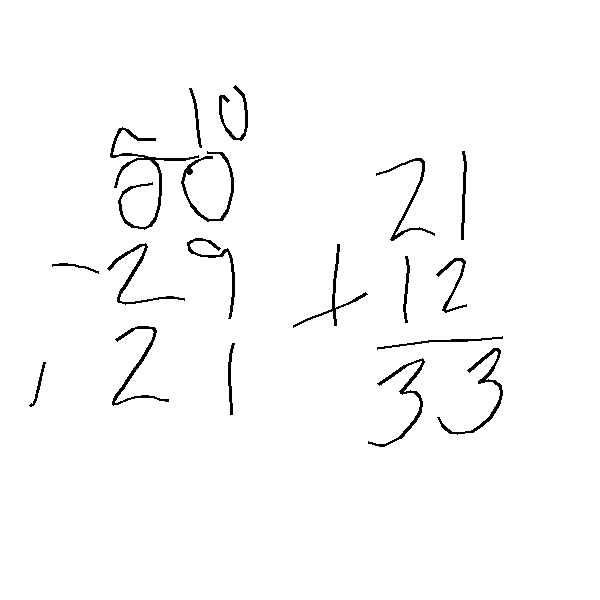 5 10
60
- 29
, 21
21
+ 12
33